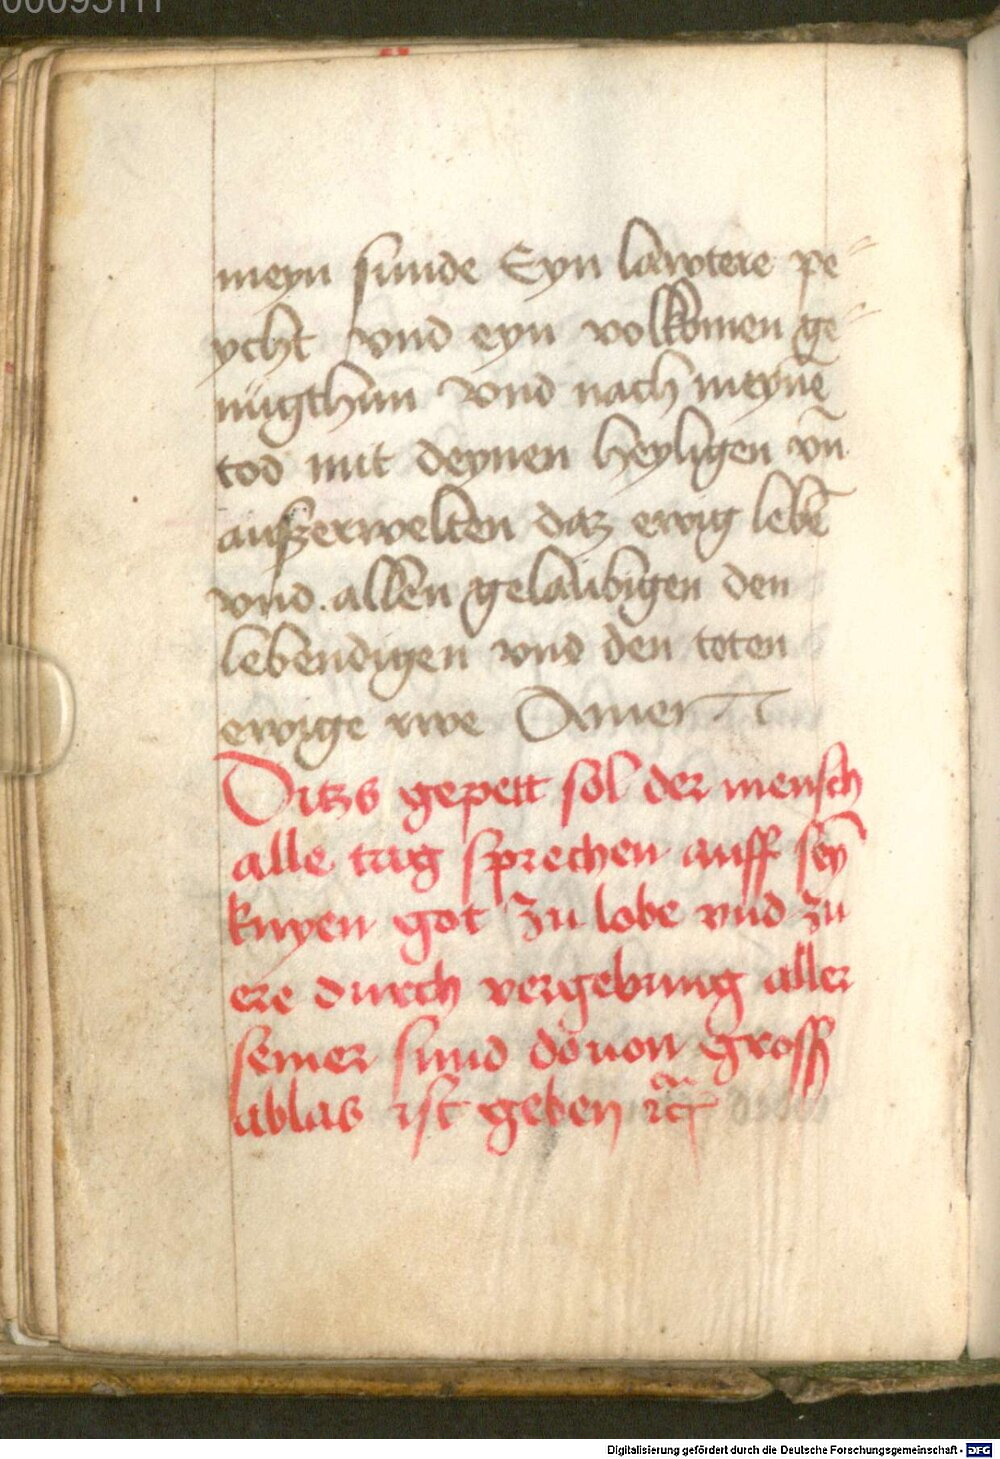 meyn sunde Eyn lawtere pe
ycht vnd eyn volkomen ge
nugthun vnd nach meynē
tod mit deynen heyligen vn̄
auszerwelten daz ewig lebē
vnd. allen gelaubigen den
lebendigen vnd den toten
ewige rwe Amen
Ditzs gepett sol der mensch
alle tag sprechen auff sey̅
knyen got zu lobe vnd zu
ere durch vergebung aller
seiner sund douon gross
ablas ist geben
Digitalisierung gefördert durch die Deutsche Forschungsgemeinschaft - DFG